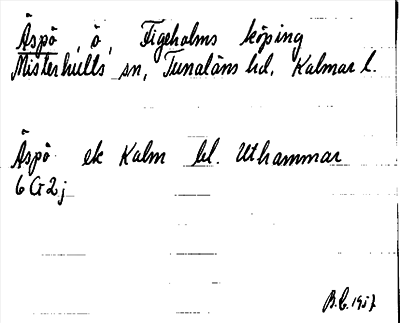 Äspö, ö, Figeholms köping
Misterhults sn, Tunaläns hd, Kalmar l.
Äspö ek Kalm bl. Uthammar
6 G 2 j
B.C. 1957